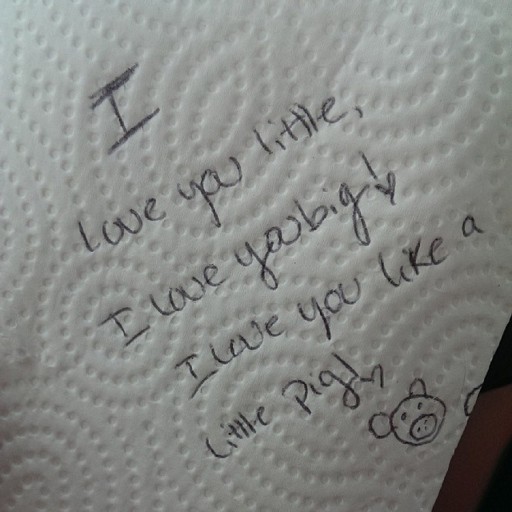 I
love you little,
I love you big!
I love you like a
little pig!